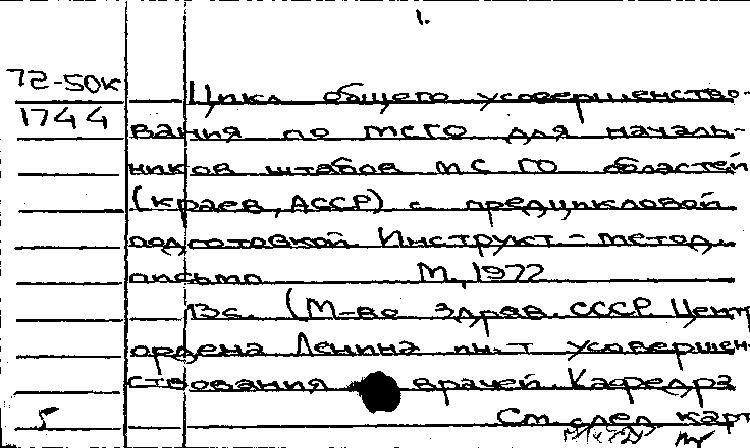 1.
72-50к Цикл общего усовершенство-
1744 вания по МСГО для началь-
ников штабов МС ГО областей
(краев, АССР) с предцикловой
подготовкой. Инструкт.-метод.
письмо М., 1972
13с. (М-во здрав. СССР. Центр
ордена Ленина ин-т усовершен
ствования врачей. Кафедра
5 См. след. карт